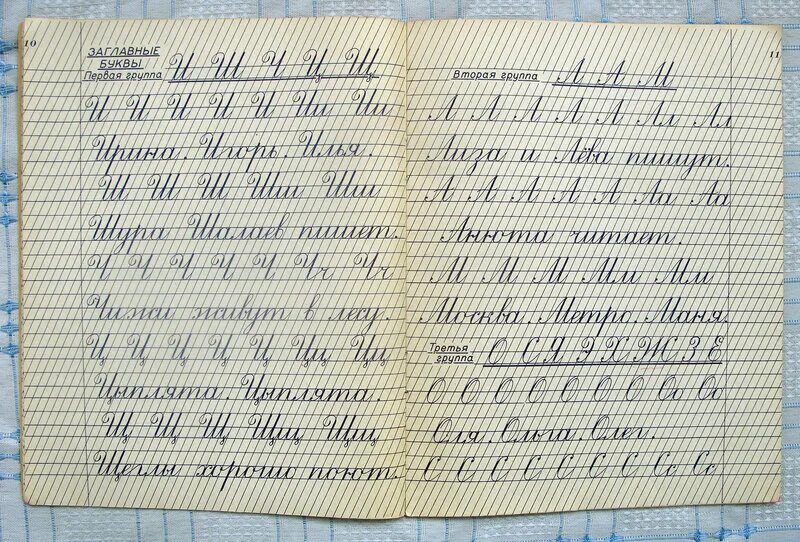 10
ЗАГЛАВНЫЕ
БУКВЫ
Первая группа И Ш Ч Ц Щ
И И И И И Ии Ии
Ирина. Игорь. Илья.
Ш Ш Ш Шш Шш
Шура Шалаев пишет.
Ч Ч Ч Ч Ч Чч Чч
Чижи живут в лесу.
Ц Ц Ц Ц Ц Ц Цц Цц
Цыплята. Цыплята.
Щ Щ Щ Щщ Щщ
Щеглы хорошо поют.
11
Вторая группа Л А М
Л Л Л Л Л Л Лл Лл
Лиза и Лёва пишут.
А А А А А А Аа Аа
Анюта читает.
М М М М Мм Мм
Москва. Метро. Маня.
Третья
группа О С Я Э Х Ж З Е
О О О О О О О О Оо Оо
Оля. Ольга. Олег.
С С С С С С С С Сс Сс